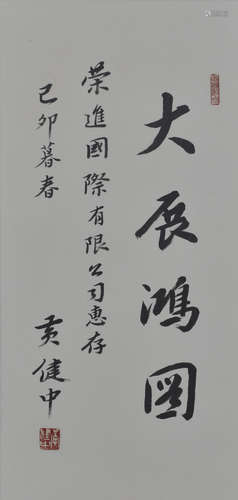 大展鴻圖
榮進國際有限公司惠存
己卯暮春
黃健中